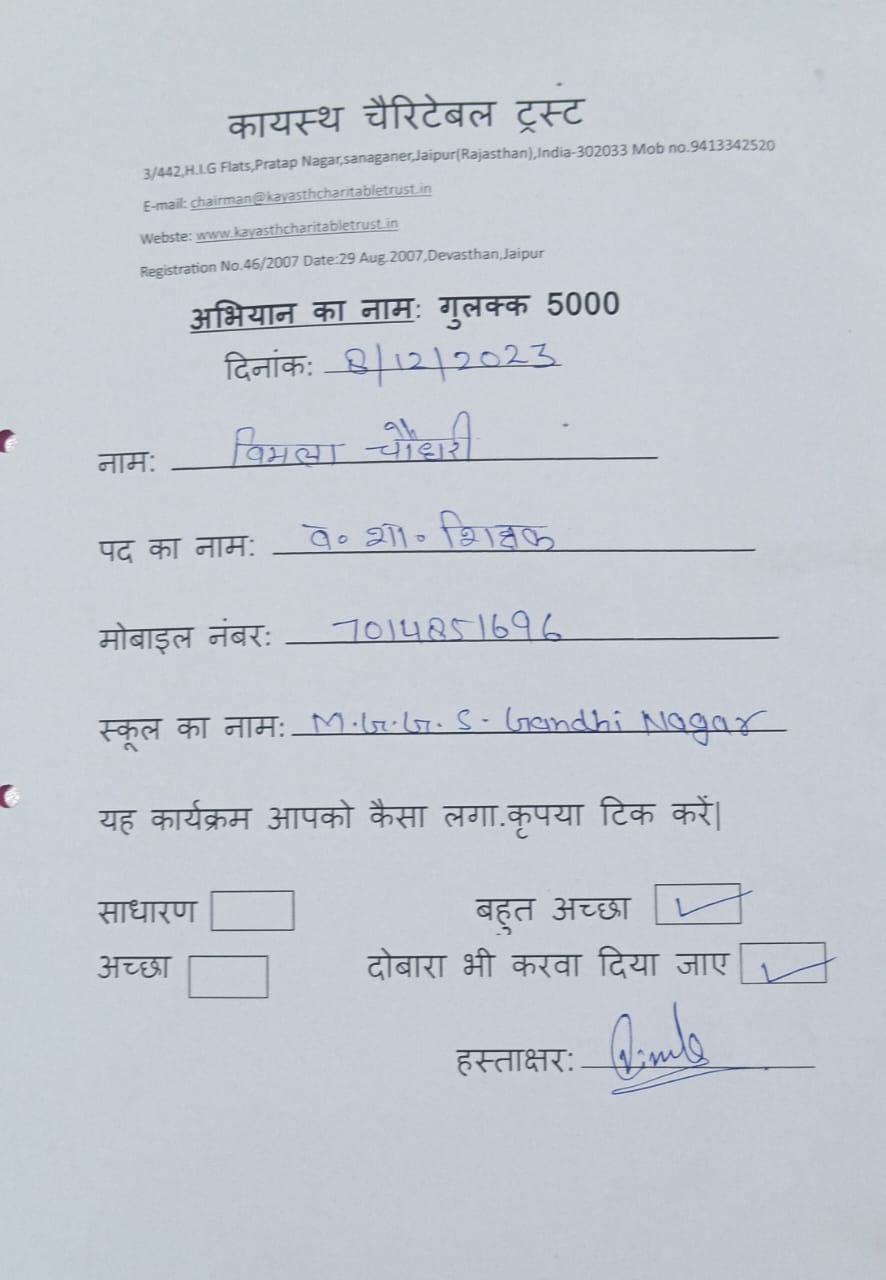 कायस्थ चैरिटेबल ट्रस्ट
3/442,H.I.G Flats,Pratap Nagar,sanaganer,Jaipur(Rajasthan),India-302033 Mob no.9413342520
E-mail: chairman@kayasthcharitabletrust.in
Webste: www.kayasthcharitabletrust.in
Registration No.46/2007 Date:29 Aug.2007,Devasthan,Jaipur
अभियान का नाम: गुलक्क 5000
दिनांक: 8/12/2023
नाम: विमला चौधरी
पद का नाम: व॰ शा॰ शिक्षक
मोबाइल नंबर: 7014851696
स्कूल का नाम: M.G.G.S. Gandhi Nagar
यह कार्यक्रम आपको कैसा लगा.कृपया टिक करें|
साधारण बहुत अच्छा ✓
अच्छा दोबारा भी करवा दिया जाए ✓
हस्ताक्षर: Vimla